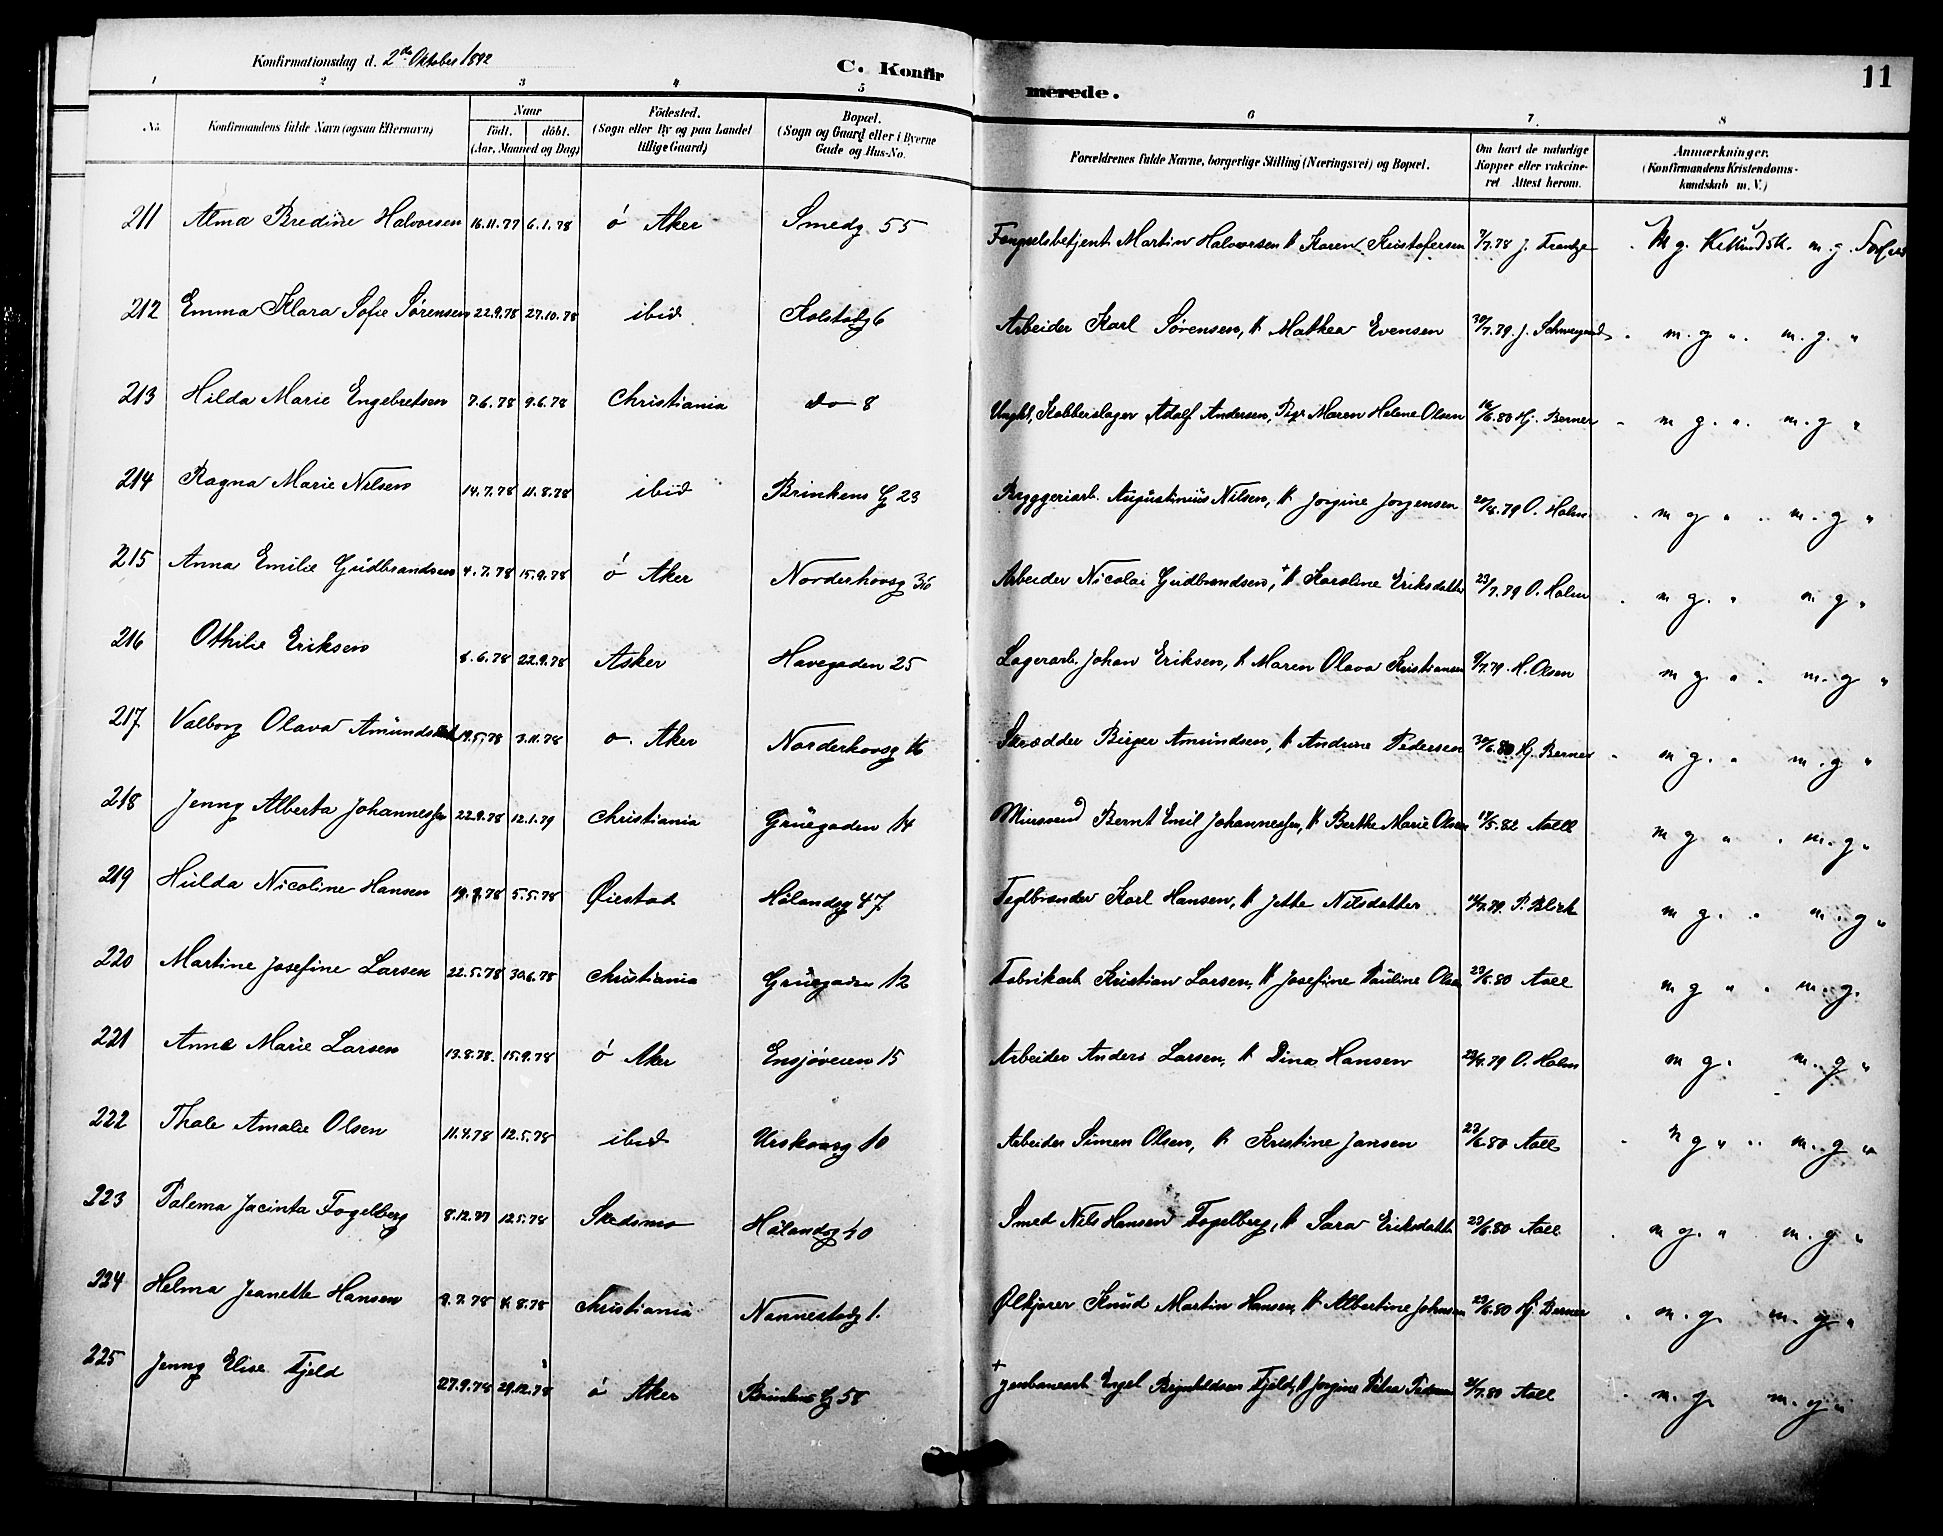 Konfirmationsdag d. 2den Oktober 1892
C. Konfirmerede.
11
1 2 3 4 5 6 7. 8
No. Konfirmandens fulde Navn (ogsaa Efternavn) Naar födt. döbt. (Aar, Maaned og Dag) Födested. (Sogn eller By og paa Landet tillige Gaard) Bopæl. (Sogn og Gaard eller i Byerne Gade og Hus-No. Forældrenes fulde Navne, borgerlige Stilling (Næringsvei) og Bopæl. Om havt de naturlige Kopper eller vakcineret Attest herom. Anmærkninger. (Konfirmandens Kristendomskundskab m. V.)
211 Alma Bredine Halvorsen 16.11.77 6.1.78 ó Aker Smedg 55 Fængselsbetjent Martin Halvorsen, & Karen Kristofersen 7/7.78 J. Frantze M g. m. g.
212 Emma Klara Sofie Sørensen 22.9.78 27.10.78 ibid Kolstadg 6 Arbeider Karl Sørensen, & Mathea Evensen 30/7.79 J. Schweigaard m. g. " m. g. "
213 Hilda Marie Engebretsen 7.6.78 9.6.78 Christiania do 8 Ungkl, Kobberslager Adolf Andersen, Pige Maren Helene Olsen 16/6.80 Hj. Berner m g. " m. g "
214 Ragna Marie Nilsen 14.7.78 11.8.78 ibid Brinkens G 23 Bryggeriarb. Augustinius Nilsen, & Jørgine Jørgensen 20/8.79 O. Holm m g " m. g "
215 Anna Emilie Gudbrandsen 4.7.78 15.9.78 ó Aker Norderhovsg 36 Arbeider Nicolai Gudbrandsen, + & Karoline Eriksdatter 23/7.79 O. Holm m g. " m g "
216 Othilie Eriksen 8.6.78 22.9.78 Asker Havegaden 25 Lagerarb. Johan Eriksen, & Maren Olava Kristiansen 9/7.79. H. Olsen m g. " m. g "
217. Valborg Olava Amundsen 19.5.78 3.11.78 o. Aker Norderhovsg 16 Skrædder Birger Amundsen, & Andrine Pedersen 30/6.80 Hj. Berner m g. " m. g "
218 Jenny Alberta Johannessen 22.9.78 12.1.79 Christiania Grüegaden 14 Mursvend Bernt Emil Johannessen, & Berthe Marie Olsen 17/5.82 Aall m g " m. g "
219 Hulda Nicoline Hansen 5.5.78 Øiestad Hölandsg 47 Teglbrænder Karl Hansen, & Jette Nilsdatter P. Blich m g. " m. g "
220 Martine Josefine Larsen 22.5.78 30.6.78 Christiania Grüegaden 12 Fabrikarb Kristian Larsen, & Josefine Pauline Olsen 23/6.80 Aall m g " m. g.
221 Anna Marie Larsen 13.8.78. 15.9.78 ó Aker Ensjöveien 15 Arbeider Anders Larsen, & Dina Hansen O. Holm m g. m. g "
222 Thale Amalie Olsen 11.4.78 12.5.78 ibid Urskovsg 10 Arbeider Simen Olsen, & Kristine Jansen 23/6.80 Aall m g " m. g "
223 Palema Jacinta Fogelberg 8.12.77 12.5.78 Skedsmo Hölandsg 40 Smed Nils Hansen Fogelberg, & Sara Eriksdatter 23/6.80 Aall m g. " m. g "
224 Helma Jeanette Hansen 9.7.78 4.8.78 Christiania Nannestadg 1. Ølkjører Knud Martin Hansen, & Albertine Johnsen 23/6.80 Hj. Berner m. g. m. g "
225 Jenny Elise Fjeld 27.9.78 29.12.78 ó Aker Brinkens G 58 + Jernbanearb Engel Brynhildsen Fjeld, & Jørgine Petra Pedersen 21/7.80 Aall m. g. m. g "